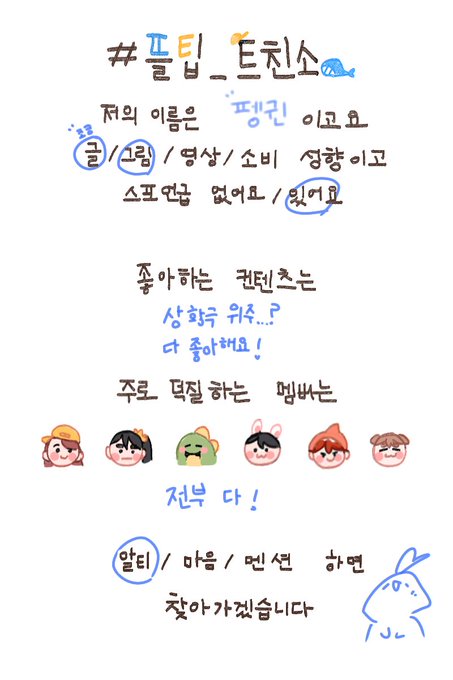 #플팁_트친소
저의 이름은 펭귄 이고요
조금
글/그림/영상/소비 성향이고
스포언급 없어요/있어요
좋아하는 컨텐츠는
상황극 위주...?
다 좋아해요!
주로 덕질하는 멤버는
전부 다!
알티/마음/멘션 하면
찾아가겠습니다